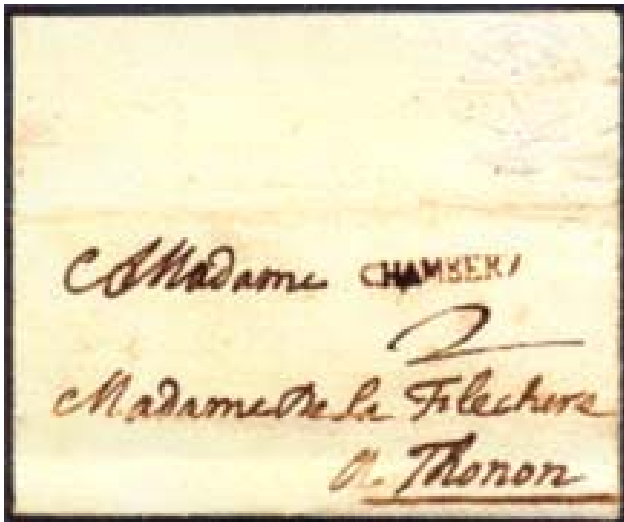 A Madame CHAMBERY
2
Madame De la Flechere
A Thonon